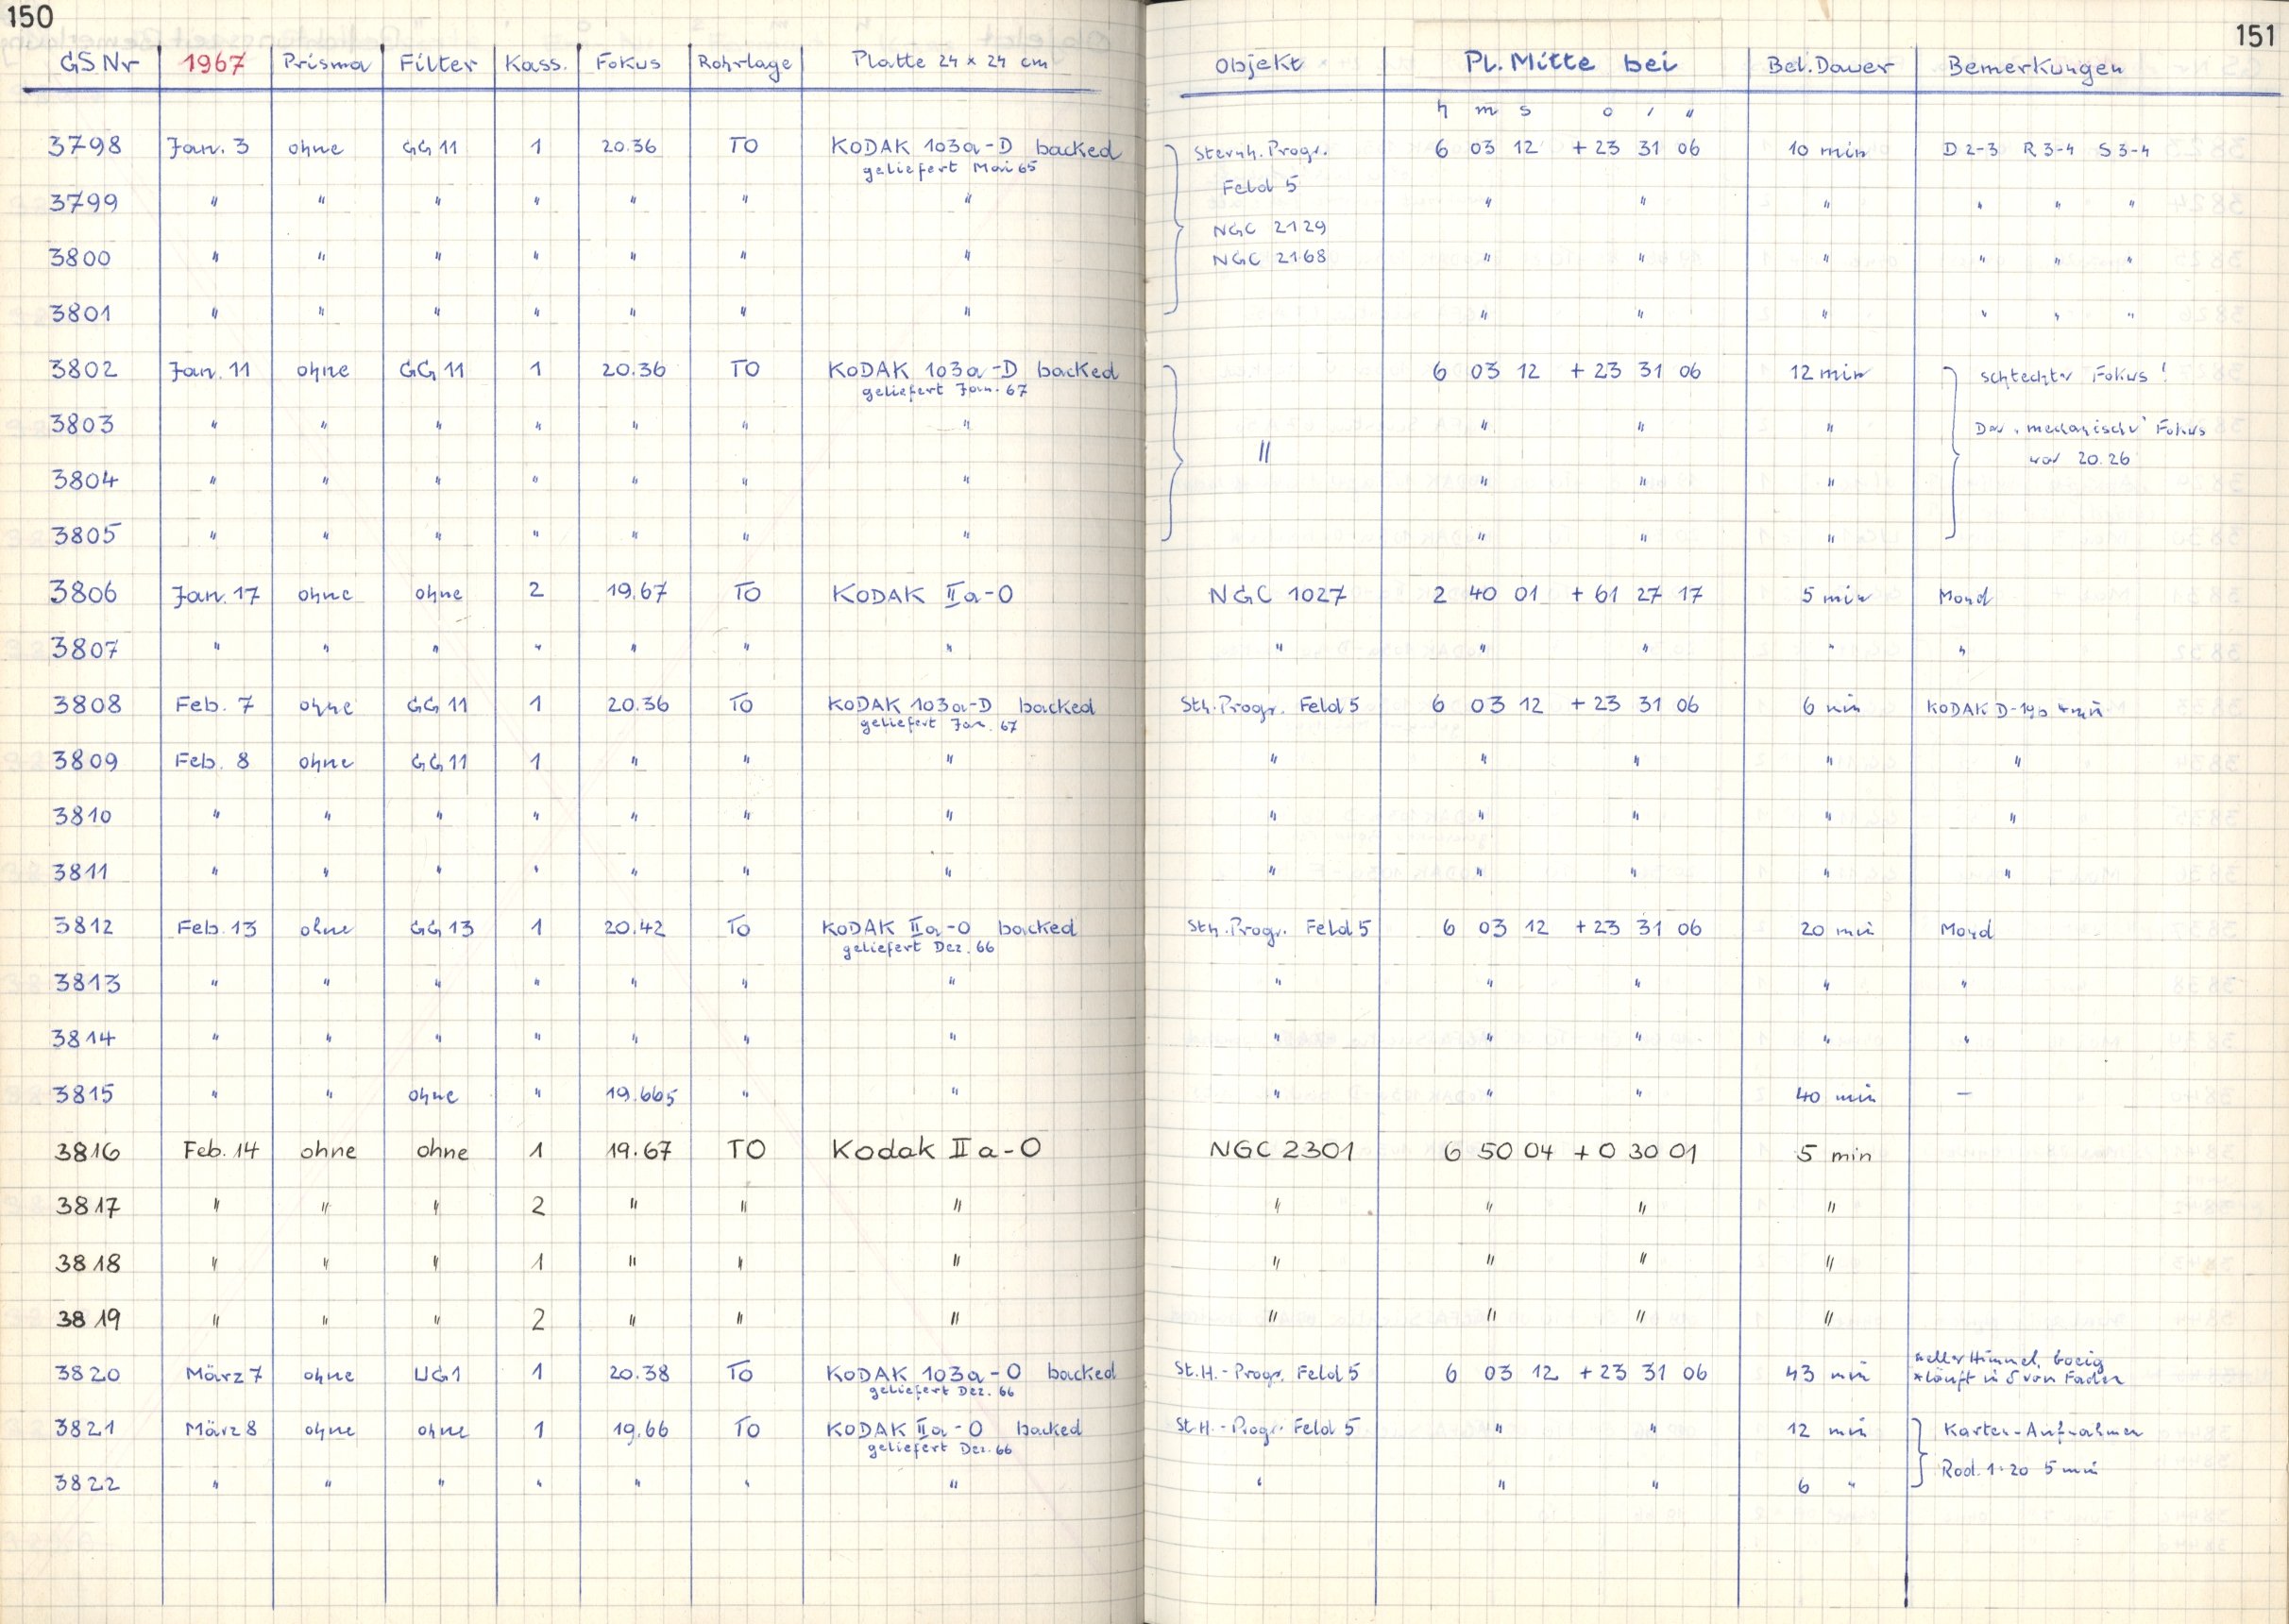 150
151
GS Nr 1967 Prisma Filter Kass. Fokus Rohrlage Platte 24 x 24 cm Objekt Pl. Mitte bei Bel. Dauer Bemerkungen
h m s o ' "
3798 Jan. 3 ohne GG 11 1 20.36 TO KODAK 103a-D backed Sternh. Progr. 6 03 12 + 23 31 06 10 min D 2-3 R 3-4 S 3-4
geliefert Mai 65
Feld 5
3799 " " " " " " " " " " " " "
NGC 2129
3800 " " " " " " " NGC 2168 " " " " " "
3801 " " " " " " " " " " " " "
3802 Jan. 11 ohne GG 11 1 20.36 TO KODAK 103a-D backed 6 03 12 + 23 31 06 12 min schlechter Fokus!
geliefert Jan. 67
3803 " " " " " " " " " " Der "mechanische" Fokus
" war 20.26
3804 " " " " " " " " " "
3805 " " " " " " " " " "
3806 Jan. 17 ohne ohne 2 19.67 TO KODAK IIa-O NGC 1027 2 40 01 + 61 27 17 5 min Mond
3807 " " " " " " " " " " " "
3808 Feb. 7 ohne GG 11 1 20.36 TO KODAK 103a-D backed Sth. Progr. Feld 5 6 03 12 + 23 31 06 6 min KODAK D-19b 4 min
geliefert Jan. 67
3809 Feb. 8 ohne GG 11 1 " " " " " " " "
3810 " " " " " " " " " " " "
3811 " " " " " " " " " " " "
3812 Feb. 13 ohne GG 13 1 20.42 TO KODAK IIa-O backed Sth. Progr. Feld 5 6 03 12 + 23 31 06 20 min Mond
geliefert Dez. 66
3813 " " " " " " " " " " " "
3814 " " " " " " " " " " " "
3815 " " ohne " 19.665 " " " " " 40 min –
3816 Feb. 14 ohne ohne 1 19.67 TO Kodak IIa-O NGC 2301 6 50 04 + 0 30 01 5 min
3817 " " " 2 " " " " " " "
3818 " " " 1 " " " " " " "
3819 " " " 2 " " " " " " "
3820 März 7 ohne UG1 1 20.38 TO KODAK 103a-O backed St.H.-Progr. Feld 5 6 03 12 + 23 31 06 43 min heller Himmel, boeig
geliefert Dez. 66
* läuft in δ von Faden
3821 März 8 ohne ohne 1 19.66 TO KODAK IIa-O backed St.H.-Progr. Feld 5 " " 12 min Karten-Aufnahmen
geliefert Dez. 66
Rod. 1:20 5 min
3822 " " " " " " " " " " 6 "